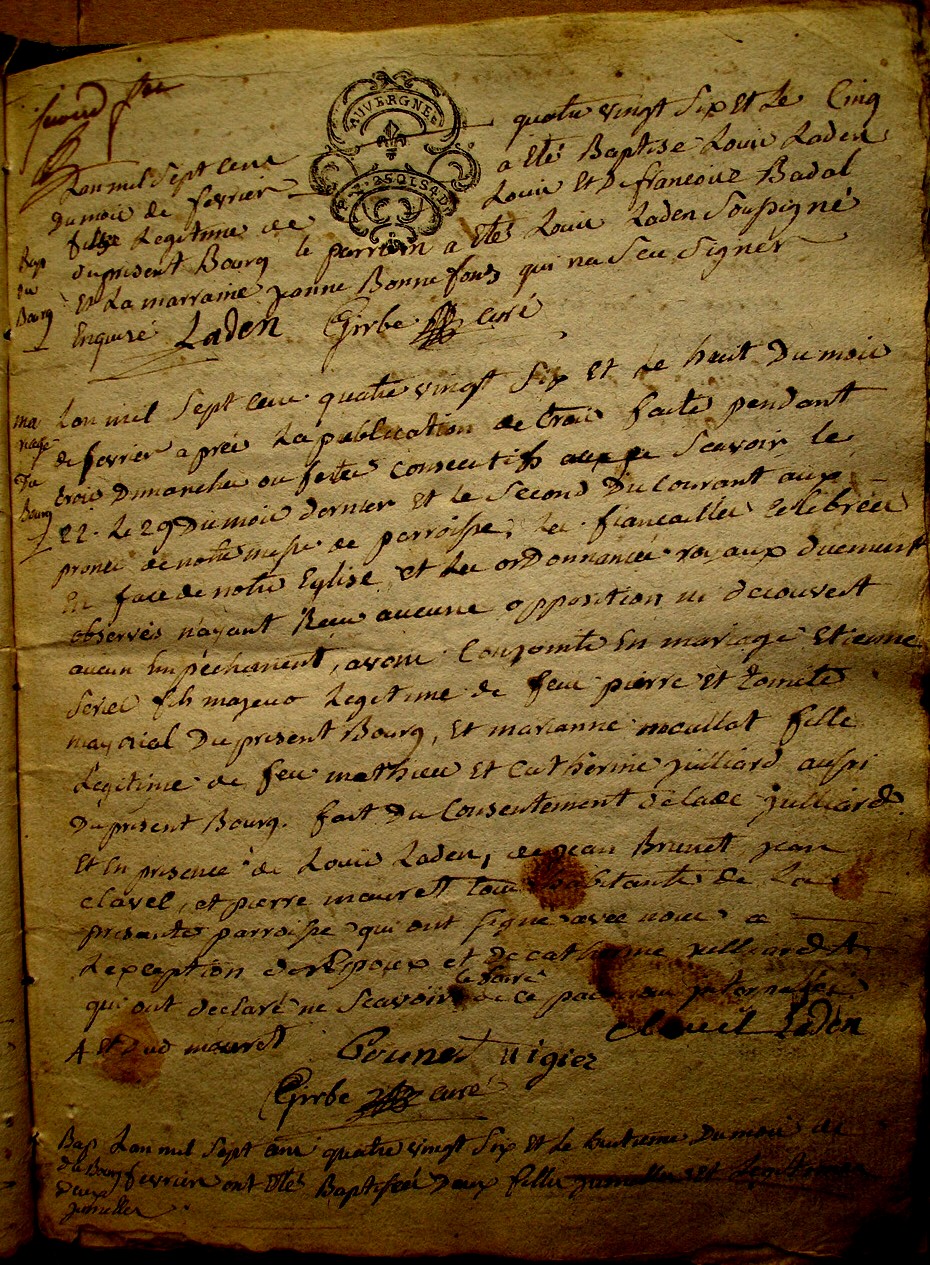 AUVERGNE
Lan mil Sept cent quatre vingt Six Et Le Cinq
du mois de fevrier a Eté Baptise Louis Laden
fils Legitime de Louis Et de francoise Badal
du present Bourg le parrein a Eté Louis Laden Soussigné
Et La marraine jeanne Bonnefous qui na Seu Signer
Enquise Laden Girbe curé
Bap
du
Bourg
Lan mil Sept cent quatre vingt Six Et Le huit Du mois
de fevrier aprés La publication de trois faite pendant
trois Dimanches ou fetes Consecutifs Scavoir le
22. Le 29 Du mois dernier Et le Second Du Courant aux
prones de notre messe de parroisse, Les fiancailles Celebrées
En face de notre Eglise et Les ordonnances royaux duement
observés nayant Reçu aucune opposition ni decouvert
aucun Empechement, avons Conjoints En mariage Etienne
Serel fils majeur Legitime de feu pierre Et Toinete
mayrial Du present Bourg, Et marianne moullat fille
Legitime de feu mathieu Et Catherine juilliard aussi
Du present Bourg. fait du Consentement de lade juilliard
Et En presence de Louis Laden, de jean Brunet jean
clavel, et pierre mouret tous habitants de La
presente parroisse qui ont Signé avec nous a
Lexception des Epoux et de catherine julliard Et
qui ont declaré ne Scavoir le faire de ce
A Et dud mouret Claveil Laden
Girbe curé
ma
riage
Du
Bourg
Lan mil Sept cent quatre vingt Six Et Le huitieme Du mois de
fevrier ont Eté Baptisées Deux filles jumelles
Bap
du Bourg
deux
jumelles